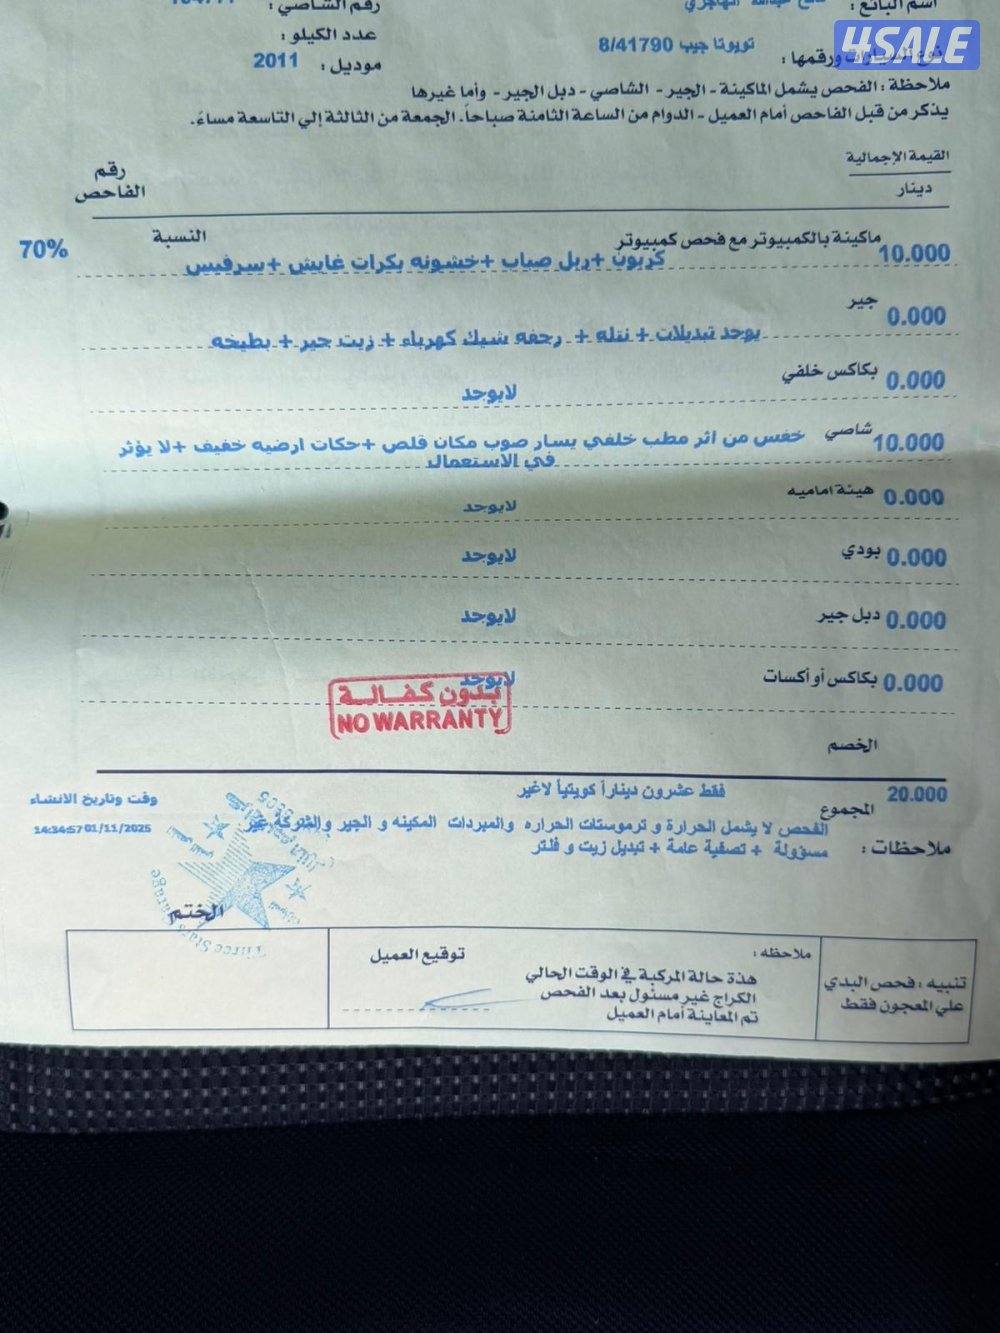 اسم البائع :
رقم الشاصي :
4SALE
عدد الكيلو :
نوع السيارات ورقمها : تويوتا جيب 8/41790
موديل : 2011
ملاحظة : الفحص يشمل الماكينة - الجير - الشاصي - دبل الجير - وأما غيرها
يذكر من قبل الفاحص أمام العميل - الدوام من الساعة الثامنة صباحاً. الجمعة من الثالثة إلي التاسعة مساءً.
القيمة الإجمالية
دينار
رقم
الفاحص
ماكينة بالكمبيوتر مع فحص كمبيوتر
النسبة
70%
10.000
كربون +ربل صباب +خشونه بكرات غايش +سرفيس
جير
0.000
يوجد تبديلات + نتله + رجفه شيك كهرباء + زيت جير + بطيخه
بكاكس خلفي
0.000
لايوجد
شاصي
10.000
خفس من اثر مطب خلفي يسار صوب مكان قلص +حكات ارضيه خفيف +لا يؤثر
في الاستعمال
هيئة اماميه
0.000
لايوجد
بودي
0.000
لايوجد
دبل جير
0.000
لايوجد
بكاكس أو أكسات
0.000
لايوجد
بدون كفالة
NO WARRANTY
الخصم
20.000
فقط عشرون ديناراً كويتياً لاغير
المجموع
وقت وتاريخ الانشاء
14:34:57 01/11/2025
ملاحظات :
الفحص لا يشمل الحرارة و ترموستات الحراره والمبردات المكينه و الجير والشركة غير
مسؤولة + تصفية عامة + تبديل زيت و فلتر
Three Stars Garage
الختم
تنبيه : فحص البدي
علي المعجون فقط
ملاحظه :
هذة حالة المركبة في الوقت الحالي
الكراج غير مسئول بعد الفحص
تم المعاينة أمام العميل
توقيع العميل